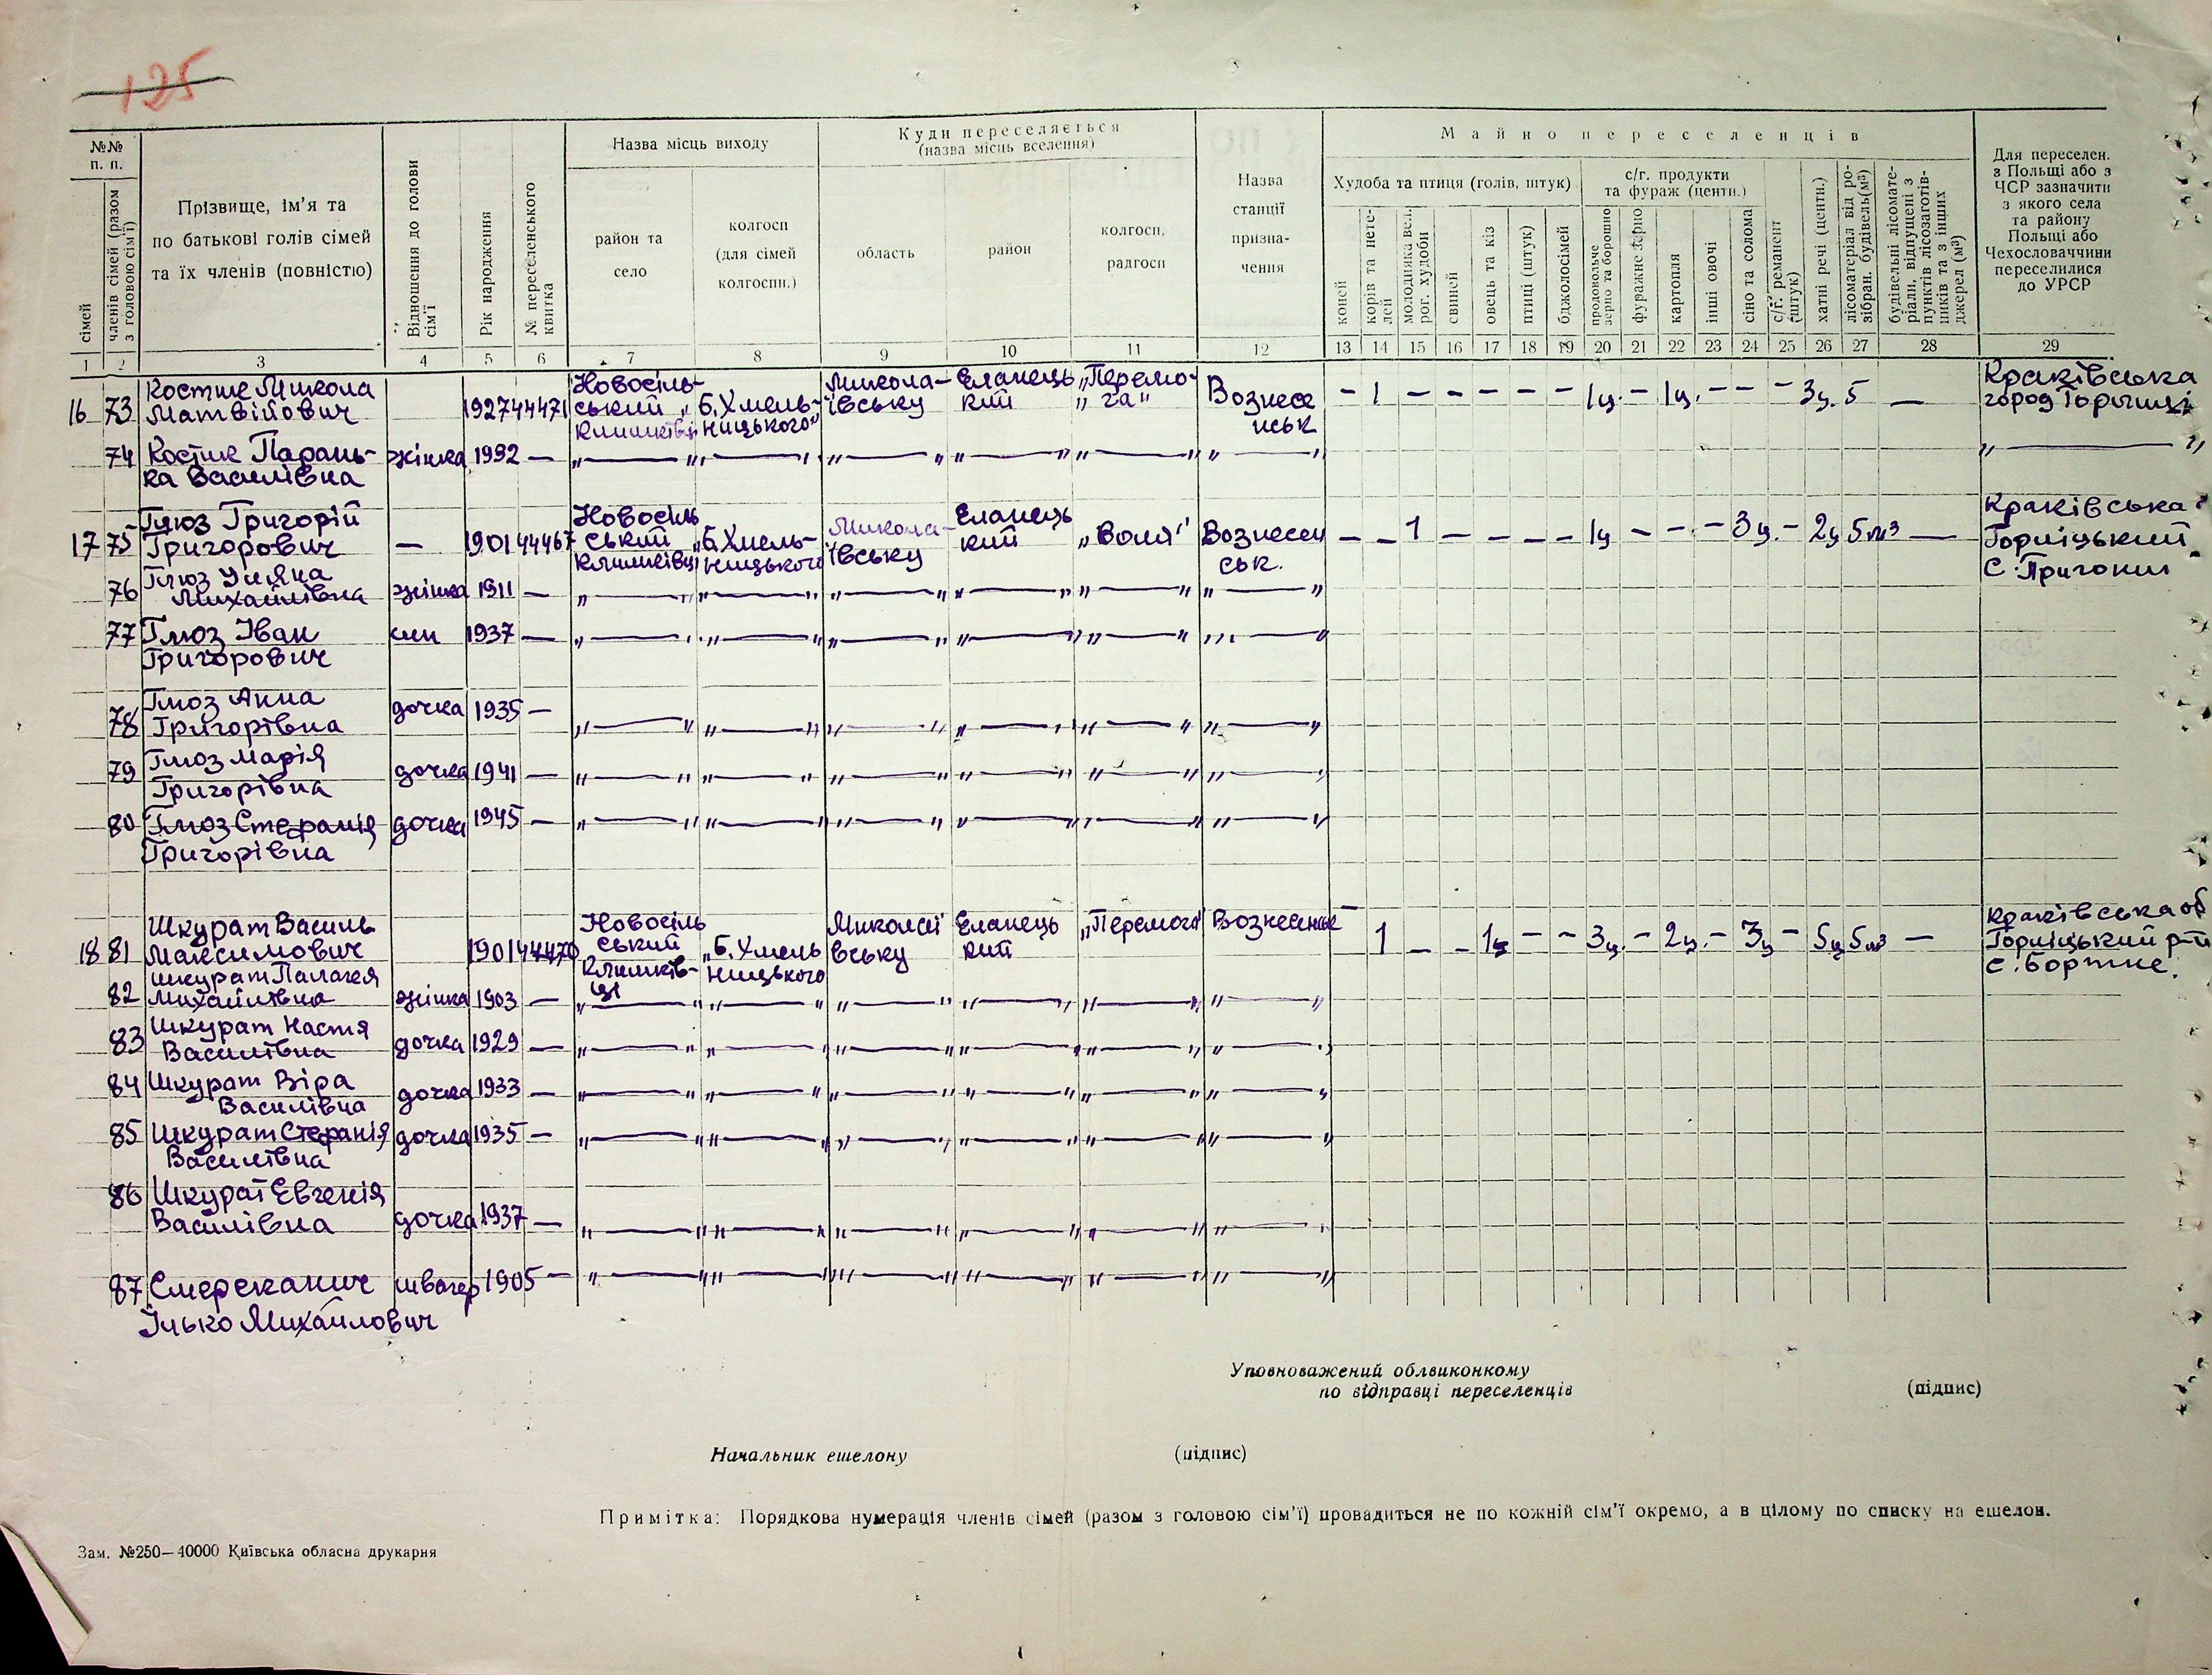 125
№№ п. п.
сімей
членів сімей (разом з головою сім'ї)
Прізвище, ім'я та
по батькові голів сімей
та їх членів (повністю)
Відношення до голови сім'ї
Рік народження
№ переселенського квитка
Назва місць виходу
район та
село
колгосп
(для сімей
колгоспн.)
Куди переселяється
(назва місць вселення)
область
район
колгосп,
радгосп
Назва
станції
призна-
чення
Майно переселенців
Худоба та птиця (голів, штук)
коней
корів та нете-
лей
молодняка вел.
рог. худоби
свиней
овець та кіз
птиці (штук)
бджолосімей
с/г. продукти
та фураж (центн.)
продовольче
зерно та борошно
фуражне зерно
картопля
інші овочі
сіно та солома
с/г. реманент
(штук)
хатні речі (центн.)
лісоматеріал від ро-
зібран. будівель(м³)
будівельні лісомате-
ріали, відпущені з
пунктів лісозаготів-
ників та з інших
джерел (м³)
Для переселен.
з Польщі або з
ЧСР зазначити
з якого села
та району
Польщі або
Чехословаччини
переселилися
до УРСР
1 2 3 4 5 6 7 8 9 10 11 12 13 14 15 16 17 18 19 20 21 22 23 24 25 26 27 28 29
16 73 Костик Микола Матвійович 1927 44471 Новосіль-ський „Б. Хмель-ницького" Микола-ївську Еланець кий „Перемо-га" Вознесе нськ — 1 — — — — — 1ц. — 1ц. — — — 3ц. 5 — Краківська город
74 Костик Парань-ка Василівна жінка 1992 — „ — " „ — " „ — " „ — " „ — " „ — " „ — "
17 75 Глюз Григорій Григорович — 1901 44467 Новосіль ський Климківці „Б. Хмель-ницького Микола-ївську Еланець кий „Воля" Вознесен ськ. — — 1 — — — — 1ц — — — 3ц. — 2ц 5м3 — Краківська Горліцький с.
76 Глюз Уляна Михайлівна жінка 1911 — „ — " „ — " „ — " „ — " „ — " „ — "
77 Глюз Іван Григорович син 1937 — „ — " „ — " „ — " „ — " „ — " „ — "
78 Глюз Анна Григорівна дочка 1935 — „ — " „ — " „ — " „ — " „ — " „ — "
79 Глюз Марія Григорівна дочка 1941 — „ — " „ — " „ — " „ — " „ — " „ — "
80 Глюз Стефанія Григорівна дочка 1945 — „ — " „ — " „ — " „ — " „ — " „ — "
18 81 Шкурат Василь Максимович 1901 44470 Новосіль ський Климків-ці „Б. Хмель ницького Миколаї вську Еланець кий „Перемога" Вознесенськ — 1 — — 1ц — — 3ц. — 2ц. — 3ц — 5ц 5м3 — Краківська об Горліцький р-н с. Бортне.
82 Шкурат Палагея Михайлівна жінка 1903 — „ — " „ — " „ — " „ — " „ — " „ — "
83 Шкурат Настя Василівна дочка 1929 — „ — " „ — " „ — " „ — " „ — " „ — "
84 Шкурат Віра Василівна дочка 1933 — „ — " „ — " „ — " „ — " „ — " „ — "
85 Шкурат Стефанія Василівна дочка 1935 — „ — " „ — " „ — " „ — " „ — " „ — "
86 Шкурат Евгенія Василівна дочка 1937 — „ — " „ — " „ — " „ — " „ — " „ — "
87 Смереканич Ілько Михайлович швагер 1905 — „ — " „ — " „ — " „ — " „ — " „ — "
Уповноважений облвиконкому
по відправці переселенців (підпис)
Начальник ешелону (підпис)
Примітка: Порядкова нумерація членів сімей (разом з головою сім'ї) провадиться не по кожній сім'ї окремо, а в цілому по списку на ешелон.
Зам. №250—40000 Київська обласна друкарня